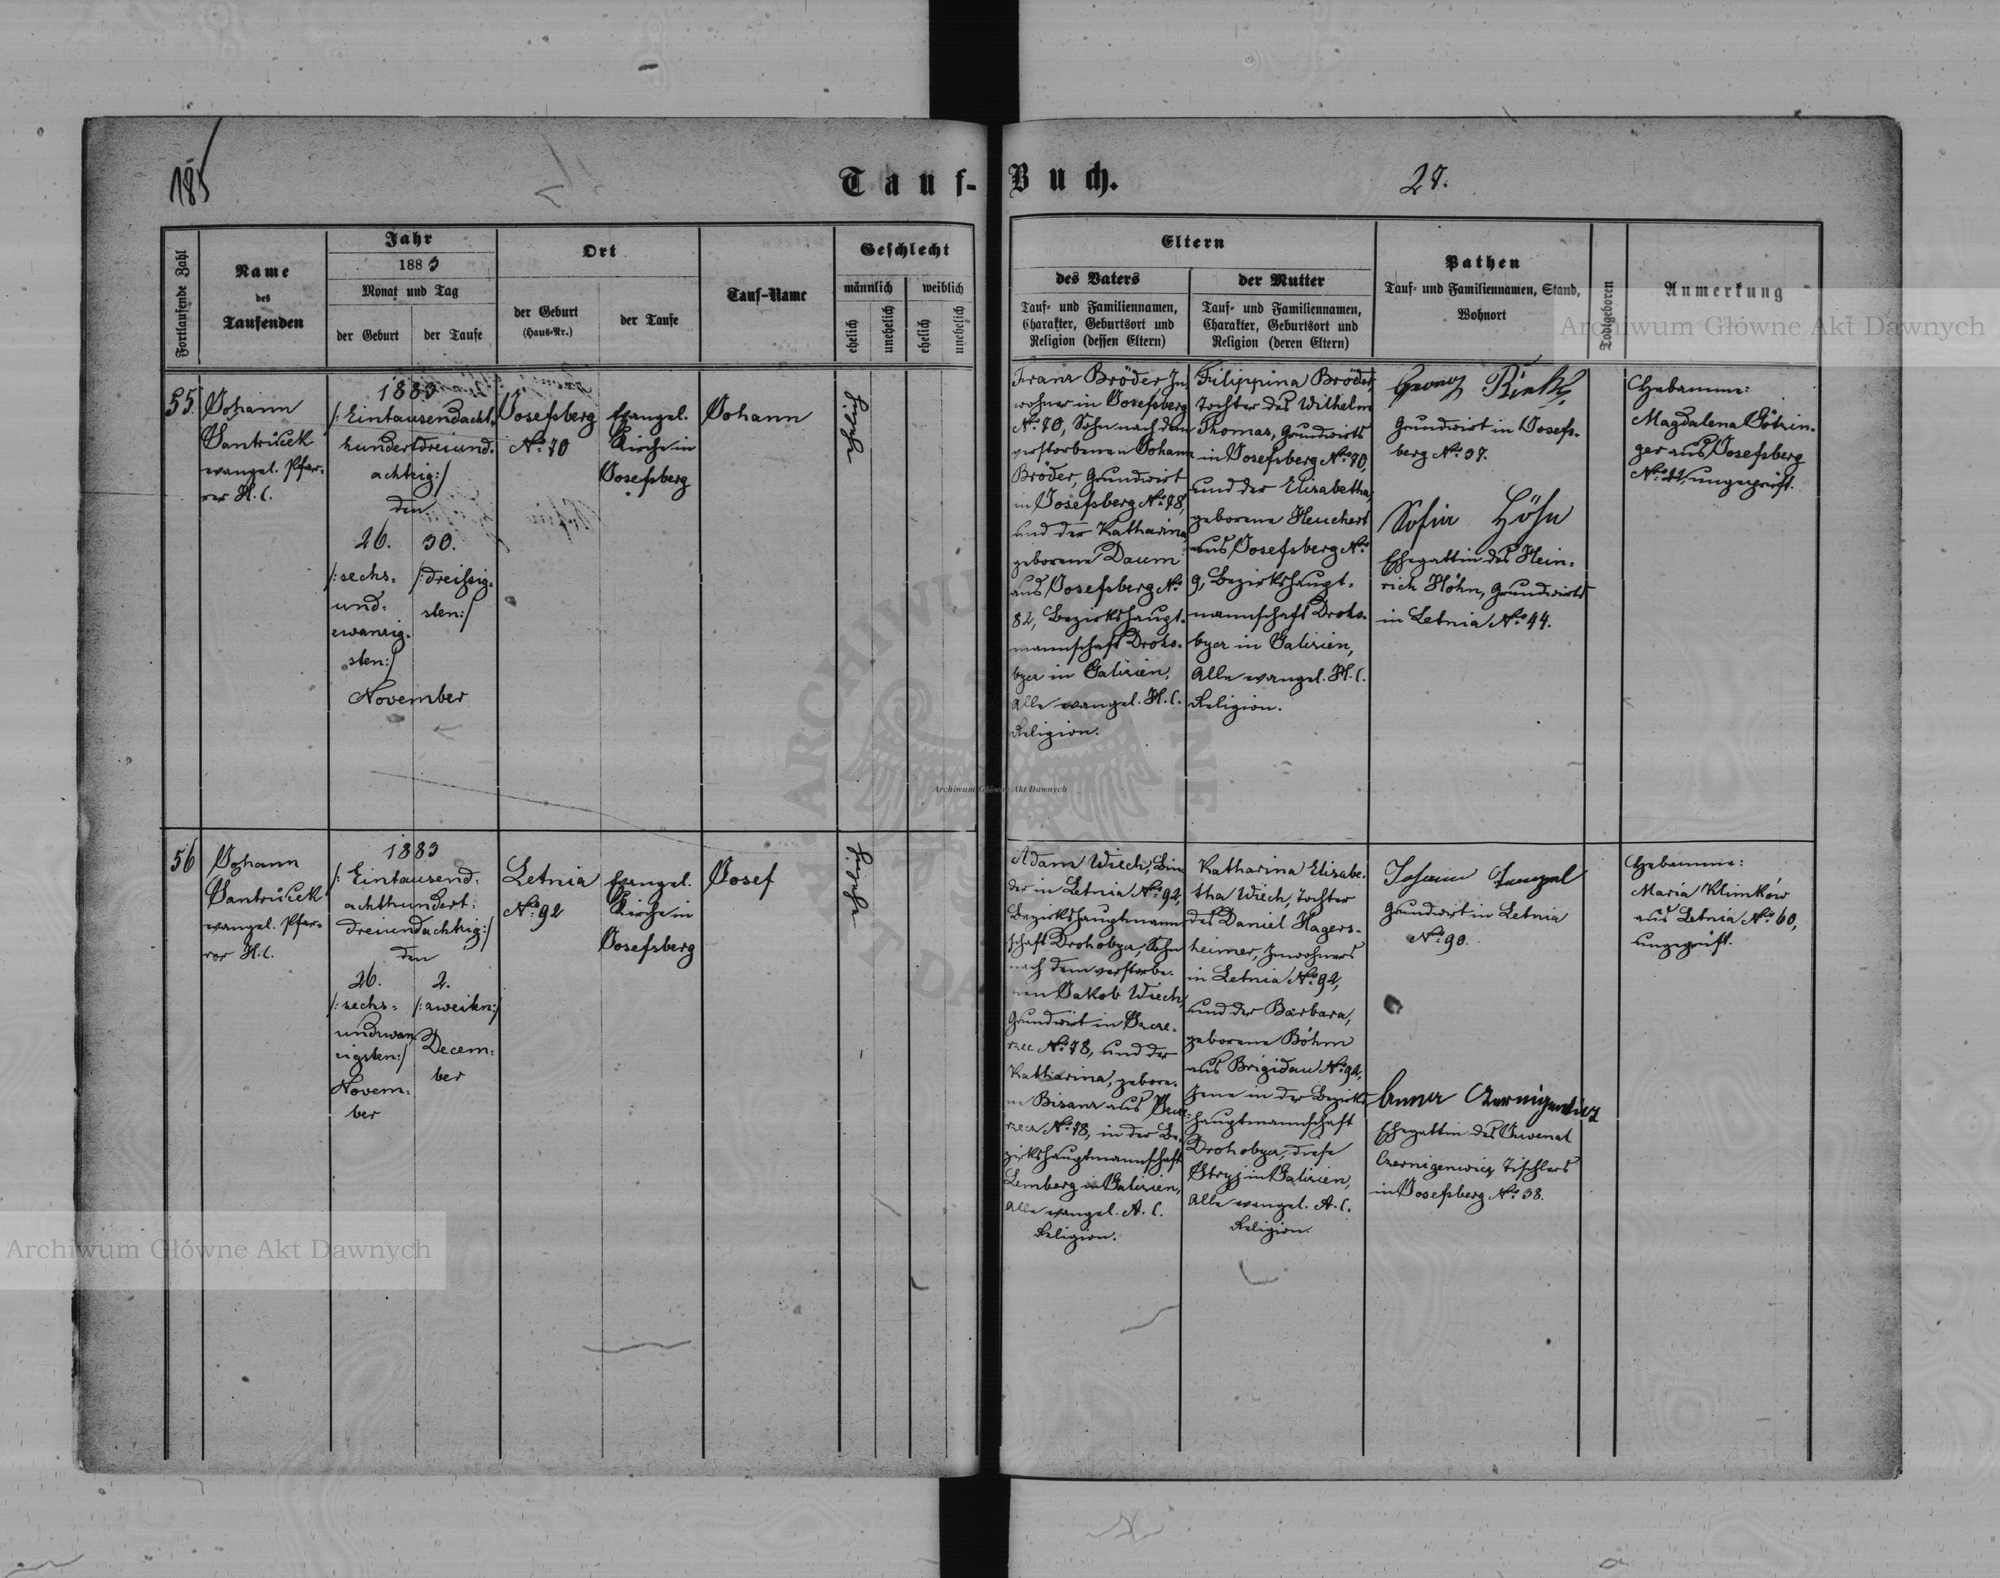 185
Tauf-Buch.
27.
Fortlaufende Zahl
Name
des
Taufenden
Jahr
1883
Monat und Tag
der Geburt
der Taufe
Ort
der Geburt
(Haus-Nr.)
der Taufe
Tauf-Name
Geschlecht
männlich
weiblich
ehelich
unehelich
ehelich
unehelich
Eltern
des Vaters
Tauf- und Familiennamen,
Charakter, Geburtsort und
Religion (dessen Eltern)
der Mutter
Tauf- und Familiennamen,
Charakter, Geburtsort und
Religion (deren Eltern)
Pathen
Tauf- und Familiennamen, Stand,
Wohnort
Todtgeboren
Anmerkung
55.
Johann
Jantriček
evangel. Pfar-
rer H. C.
1883
/: Eintausendacht-
hundertdreiund-
achtzig :/
den
26.
/: sechs-
und-
zwanzig-
sten :/
30.
/: dreißig-
sten :/
November
Josefsberg
No. 70
Evangel.
Kirche in
Josefsberg
Johann
Franz Bröder In-
wohner in Josefsberg
No. 70, Sohn nach dem
verstorbenen Johann
Bröder, Grundwirt
in Josefsberg No. 78,
und der Katharina
geborene Daum
aus Josefsberg No.
82, Bezirkshaupt-
mannschaft Droho-
bycz in Galizien,
Alle evangel. H. C.
Religion.
Filippina Bröder
Tochter des Wilhelm
Thomas, Grundwirts
in Josefsberg No. 70,
und der Elisabetha,
geborene Heuchert
aus Josefsberg No.
9, Bezirkshaupt-
mannschaft Droho-
bycz in Galizien,
Alle evangel. H. C.
Religion.
Georg
Grundwirt in Josefs-
berg No. 37.
Sofia Höhn
Ehegattin des Hein-
rich Höhn, Grundwirts
in Letnia No. 44.
Hebamme:
Magdalena Götzin-
ger aus Josefsberg
ungeprüft.
56
Johann
Jantriček
evangel. Pfar-
rer H. C.
1883
/: Eintausend-
achthundert-
dreiundachtzig :/
den
26.
/: sechs-
undzwan-
zigsten :/
Novem-
ber
2.
/: zweiten :/
Decem-
ber
Letnia
No. 92
Evangel.
Kirche in
Josefsberg
Josef
Adam Wiech, Bin-
der in Letnia No. 92,
Bezirkshauptmann-
schaft Drohobycz, Sohn
nach dem verstorbe-
nen Jakob Wiech,
Grundwirt in
No. 78, und der
Katharina, gebore-
ne Bisanz aus
No. 78, in der Be-
zirkshauptmannschaft
Lemberg in Galizien,
Alle evangel. A. C.
Religion.
Katharina Elisabe-
tha Wiech, Tochter
des Daniel Hagers-
heimer, Inwohners
in Letnia No. 92,
und der Barbara,
geborene Böhm
aus Brigidau No. 92,
Jene in der Bezirks-
hauptmannschaft
Drohobycz, diese
Stryj in Galizien,
Alle evangel. A. C.
Religion.
Johann
Grundwirt in Letnia
No. 90.
Anna Czernigewicz
Ehegattin des Juvenal
Czernigewicz Tischlers
in Josefsberg No. 38.
Hebamme:
Maria Klimków
aus Letnia No. 60,
ungeprüft.
Archiwum Główne Akt Dawnych
Archiwum Główne Akt Dawnych
Archiwum Główne Akt Dawnych